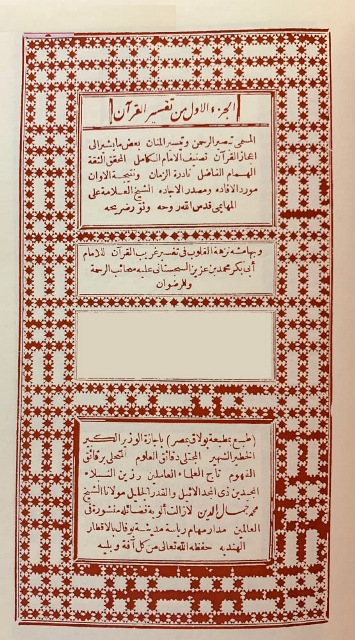 الجزء الاول من تفسير القرآن
المسمى تبصير الرحمن وتيسير المنان بعض ما يشير الى
اعجاز القرآن تصنيف الامام الكامل المحقق الثقة
الهمام الفاضل نادرة الزمان ونتيجة الاوان
مورد الافاده ومصدر الاجاده الشيخ العلامة على
المهايمى قدس الله روحه ونور ضريحه
وبهامشه نزهة القلوب فى تفسير غريب القرآن للامام
أبى بكر محمد بن عزيز السجستانى عليه سحائب الرحمة
والرضوان
(طبع بمطبعة بولاق بمصر) باجازة الوزير الكبير
الخطير الشهير المجتلى دقائق العلوم المتحلى برقائق
الفهوم تاج العلماء العاملين رزين النبلاء
المجيدين ذى المجد الاثيل والقدر الجليل مولانا الشيخ
محمد جمال الدين لازالت ألوية فضائله منشورة فى
العالمين مدار مهام رياسة مدشة بوفال بالاقطار
الهنديه حفظه الله تعالى من كل آفة وبليه